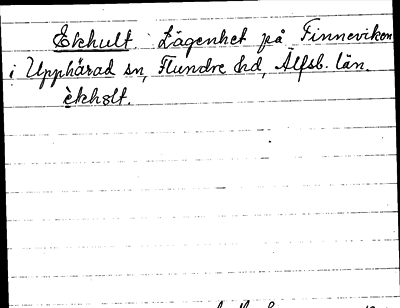 Ekhult. Lägenhet på Finneviken
i Upphärad sn, Flundre hd, Älfsb. län.
èkhølt.